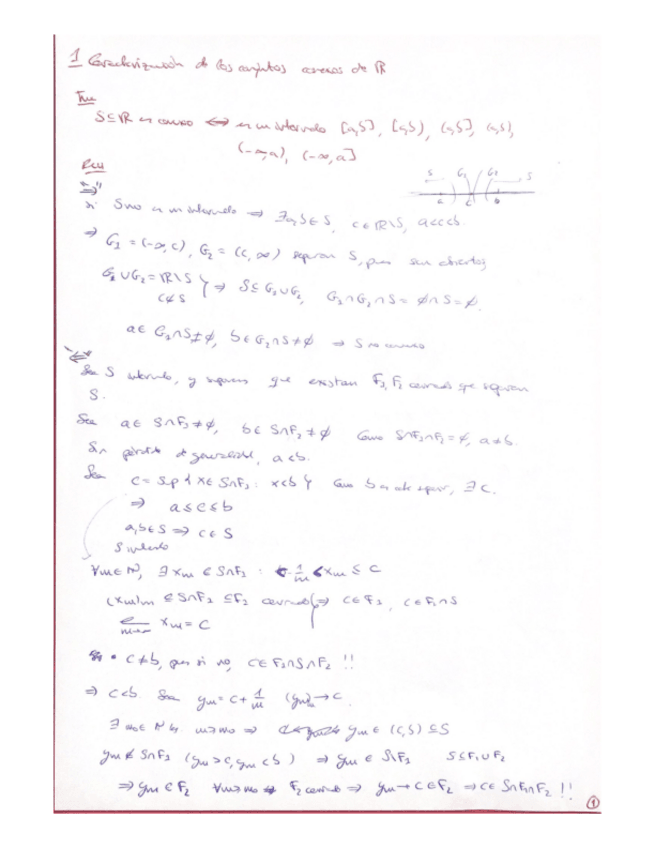 1 Caracterización de los conjuntos conexos de ℝ
Tma
S⊆ℝ es conexo ⟺ es un intervalo [a,b], [a,b), (a,b], (a,b),
(-∞,a), (-∞,a]
"⇒"
S G₁ G₂ S
a c b
si S no es un intervalo ⇒ ∃a,b∈S, c∈ℝ\S, a<c<b.
⇒ G₁ = (-∞,c), G₂ = (c,∞) separan S, pues son abiertos
G₁∪G₂ = ℝ\S } ⇒ S⊆G₁∪G₂, G₁∩G₂∩S = ∅∩S = ∅.
c∉S
a∈G₁∩S≠∅, b∈G₂∩S≠∅ ⇒ S no conexo
"⇐"
Sea S intervalo, y supongamos que existan F₁,F₂ cerrados que separan
S.
Sea a∈S∩F₁≠∅, b∈S∩F₂≠∅ Como S∩F₁∩F₂=∅, a≠b.
Sin pérdida de generalidad, a<b.
Sea c = sup{x∈S∩F₁: x<b} Como b es cota super, ∃c.
⇒ a≤c≤b
a,b∈S ⇒ c∈S
S intervalo
∀m∈ℕ, ∃xₘ∈S∩F₁ : c-1/m < xₘ ≤ c
(xₘ)ₘ ⊆ S∩F₁ ⊆ F₁ cerrado ⇒ c∈F₁, c∈F₁∩S
xₘ = c
• c≠b, pues si no, c∈F₁∩S∩F₂ !!
⇒ c<b Sea yₘ = c+1/m (yₘ)→c
∃m₀∈ℕ tq m>m₀ ⇒ yₘ∈(c,b)⊆S
yₘ∉S∩F₁ (yₘ>c, yₘ<b) ⇒ yₘ∈S\F₁ S⊆F₁∪F₂
⇒ yₘ∈F₂ ∀m>m₀ ⇒ F₂ cerrado ⇒ yₘ→c∈F₂ ⇒ c∈S∩F₁∩F₂ !!
1